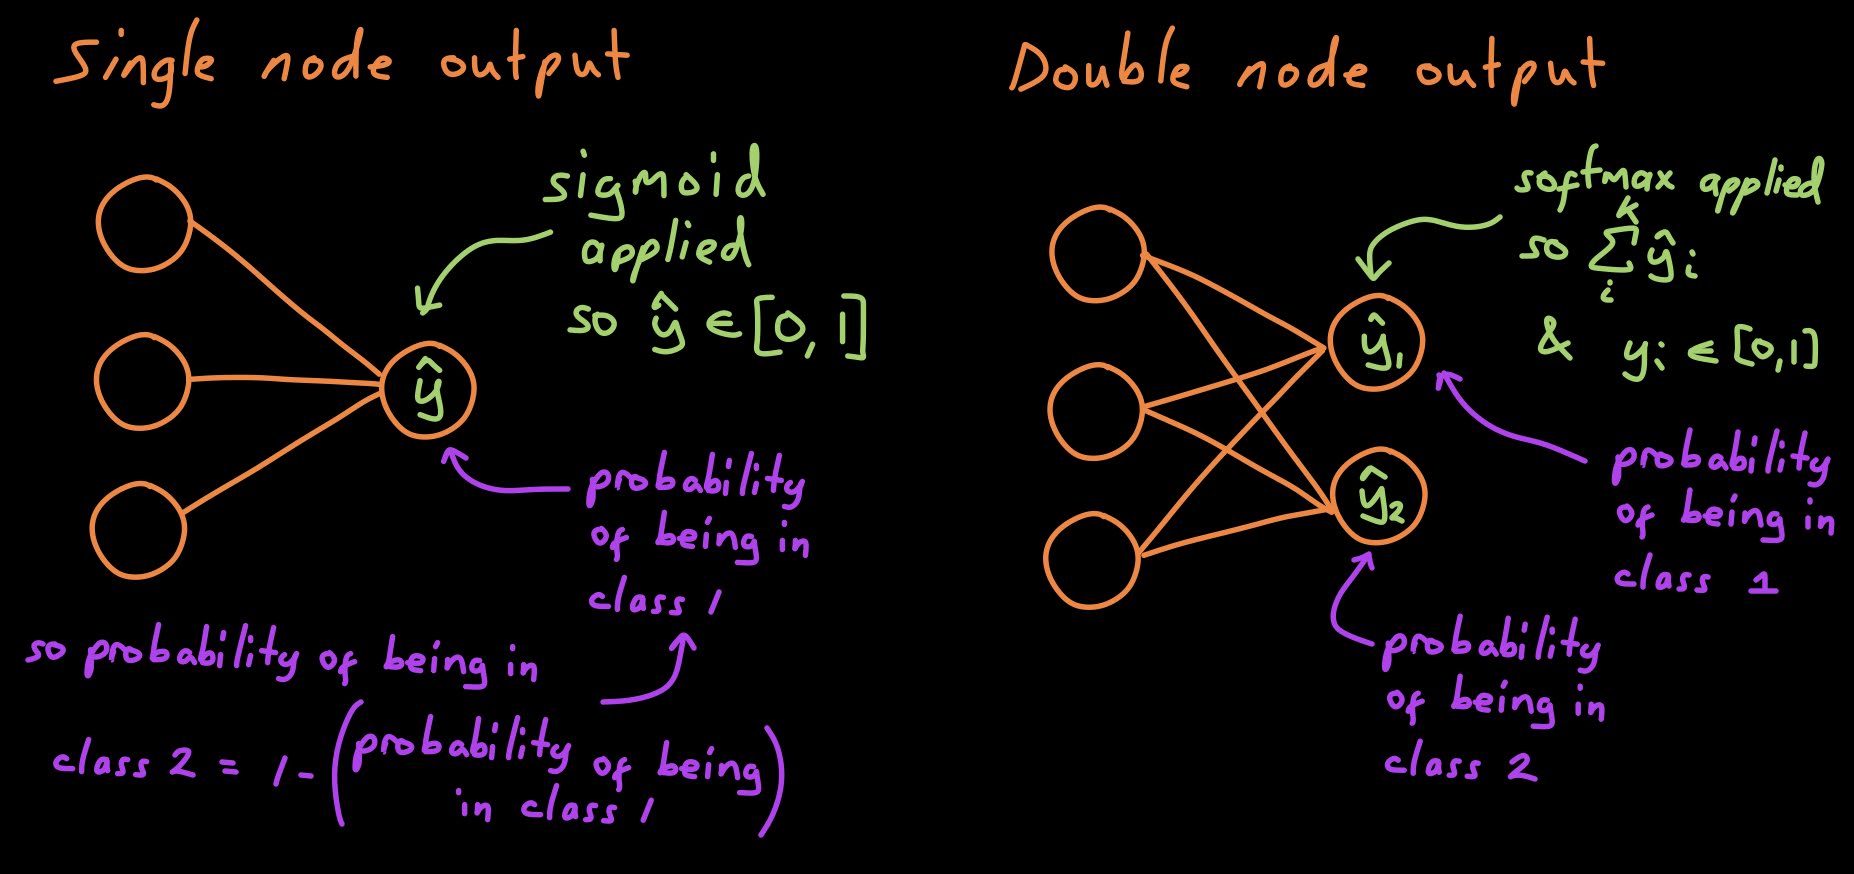 Single node output
sigmoid
applied
so ŷ ∈ [0, 1]
ŷ
probability
of being in
class 1
so probability of being in
class 2 = 1 - (probability of being
in class 1)
Double node output
softmax applied
so ∑ᵢᴷ ŷᵢ
& yᵢ ∈ [0,1]
ŷ₁
ŷ₂
probability
of being in
class 1
probability
of being in
class 2